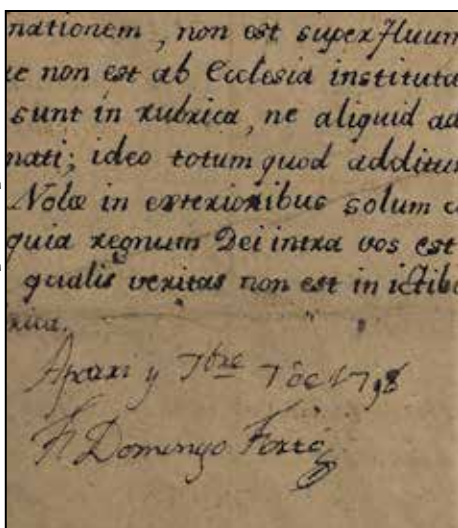 nationem, non est superfluum
e non est ab Ecclesia instituta
sunt in rubrica, ne aliquid ad
nati; ideo totum quod additu
Nolæ in exterioribus solum c
quia regnum Dei intra vos est
qualis veritas non est in ictibu
rica.
y 7bre 7 de 1798
Fr Domingo